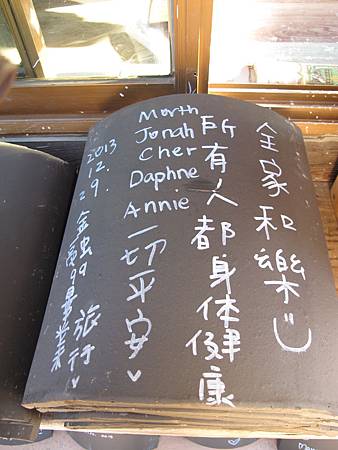 全家和樂
所有人都身体健康
Marth
Jonah
Cher
Daphne
Annie
一切平安
2013
12.
29.
旅行